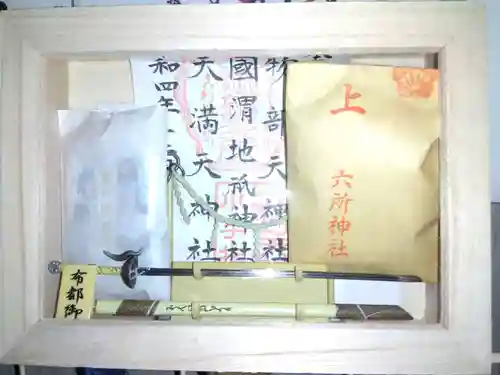 物部天神社
國渭地祇神社
天満天神社
和四年
上
六所神社
布都御